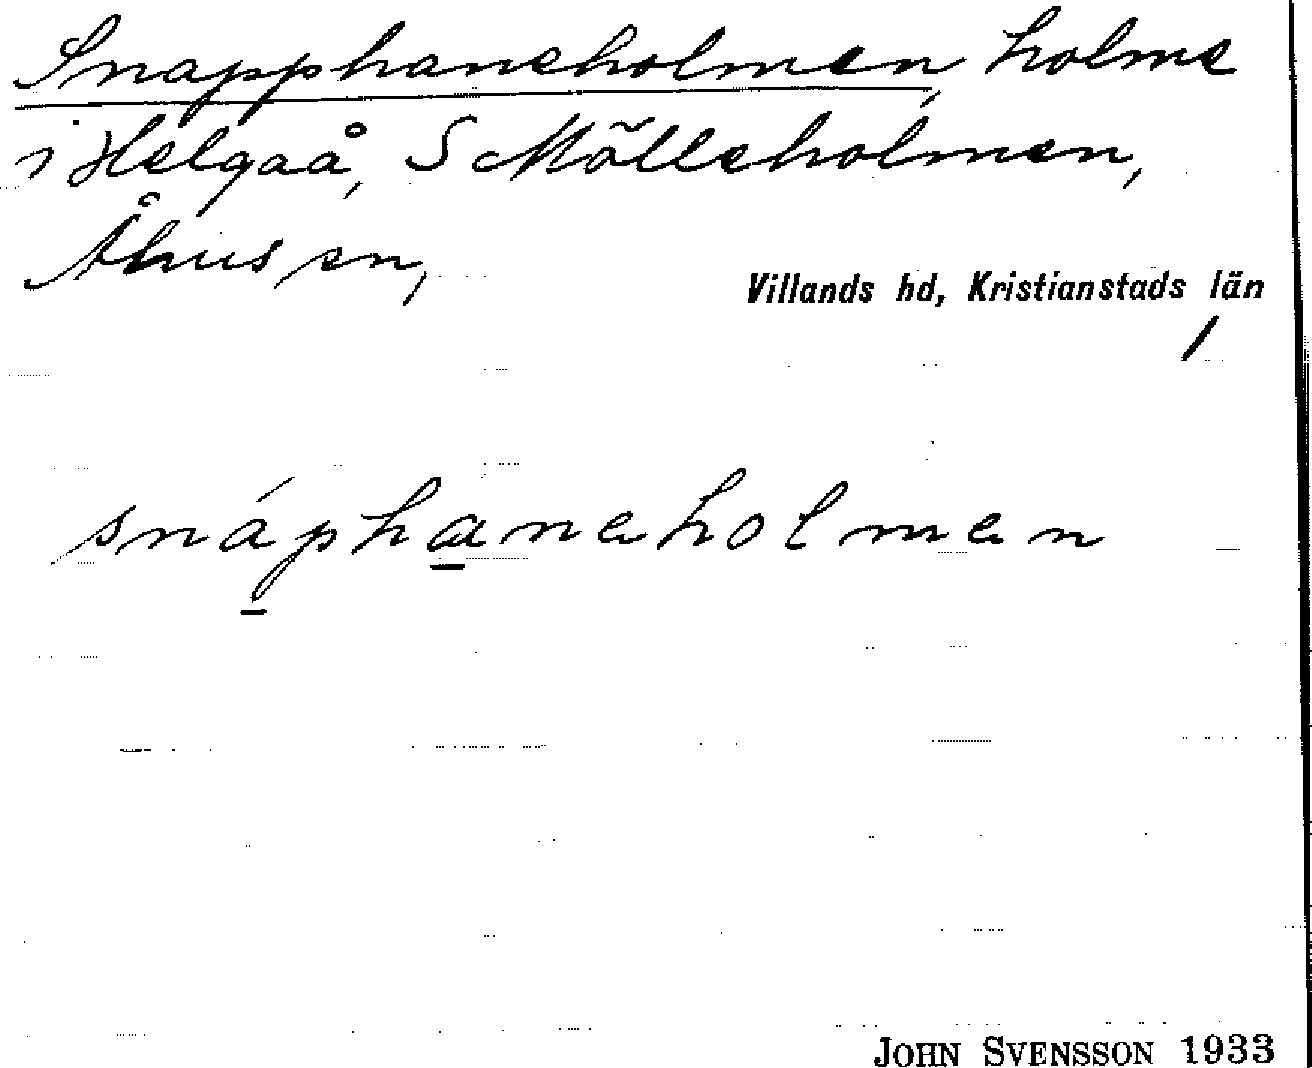 Snapphaneholmen, holme
i Helgaå, S Mölleholmen,
Åhus sn,
Villands hd, Kristianstads län
/
snáphaneholmen
JOHN SVENSSON 1933